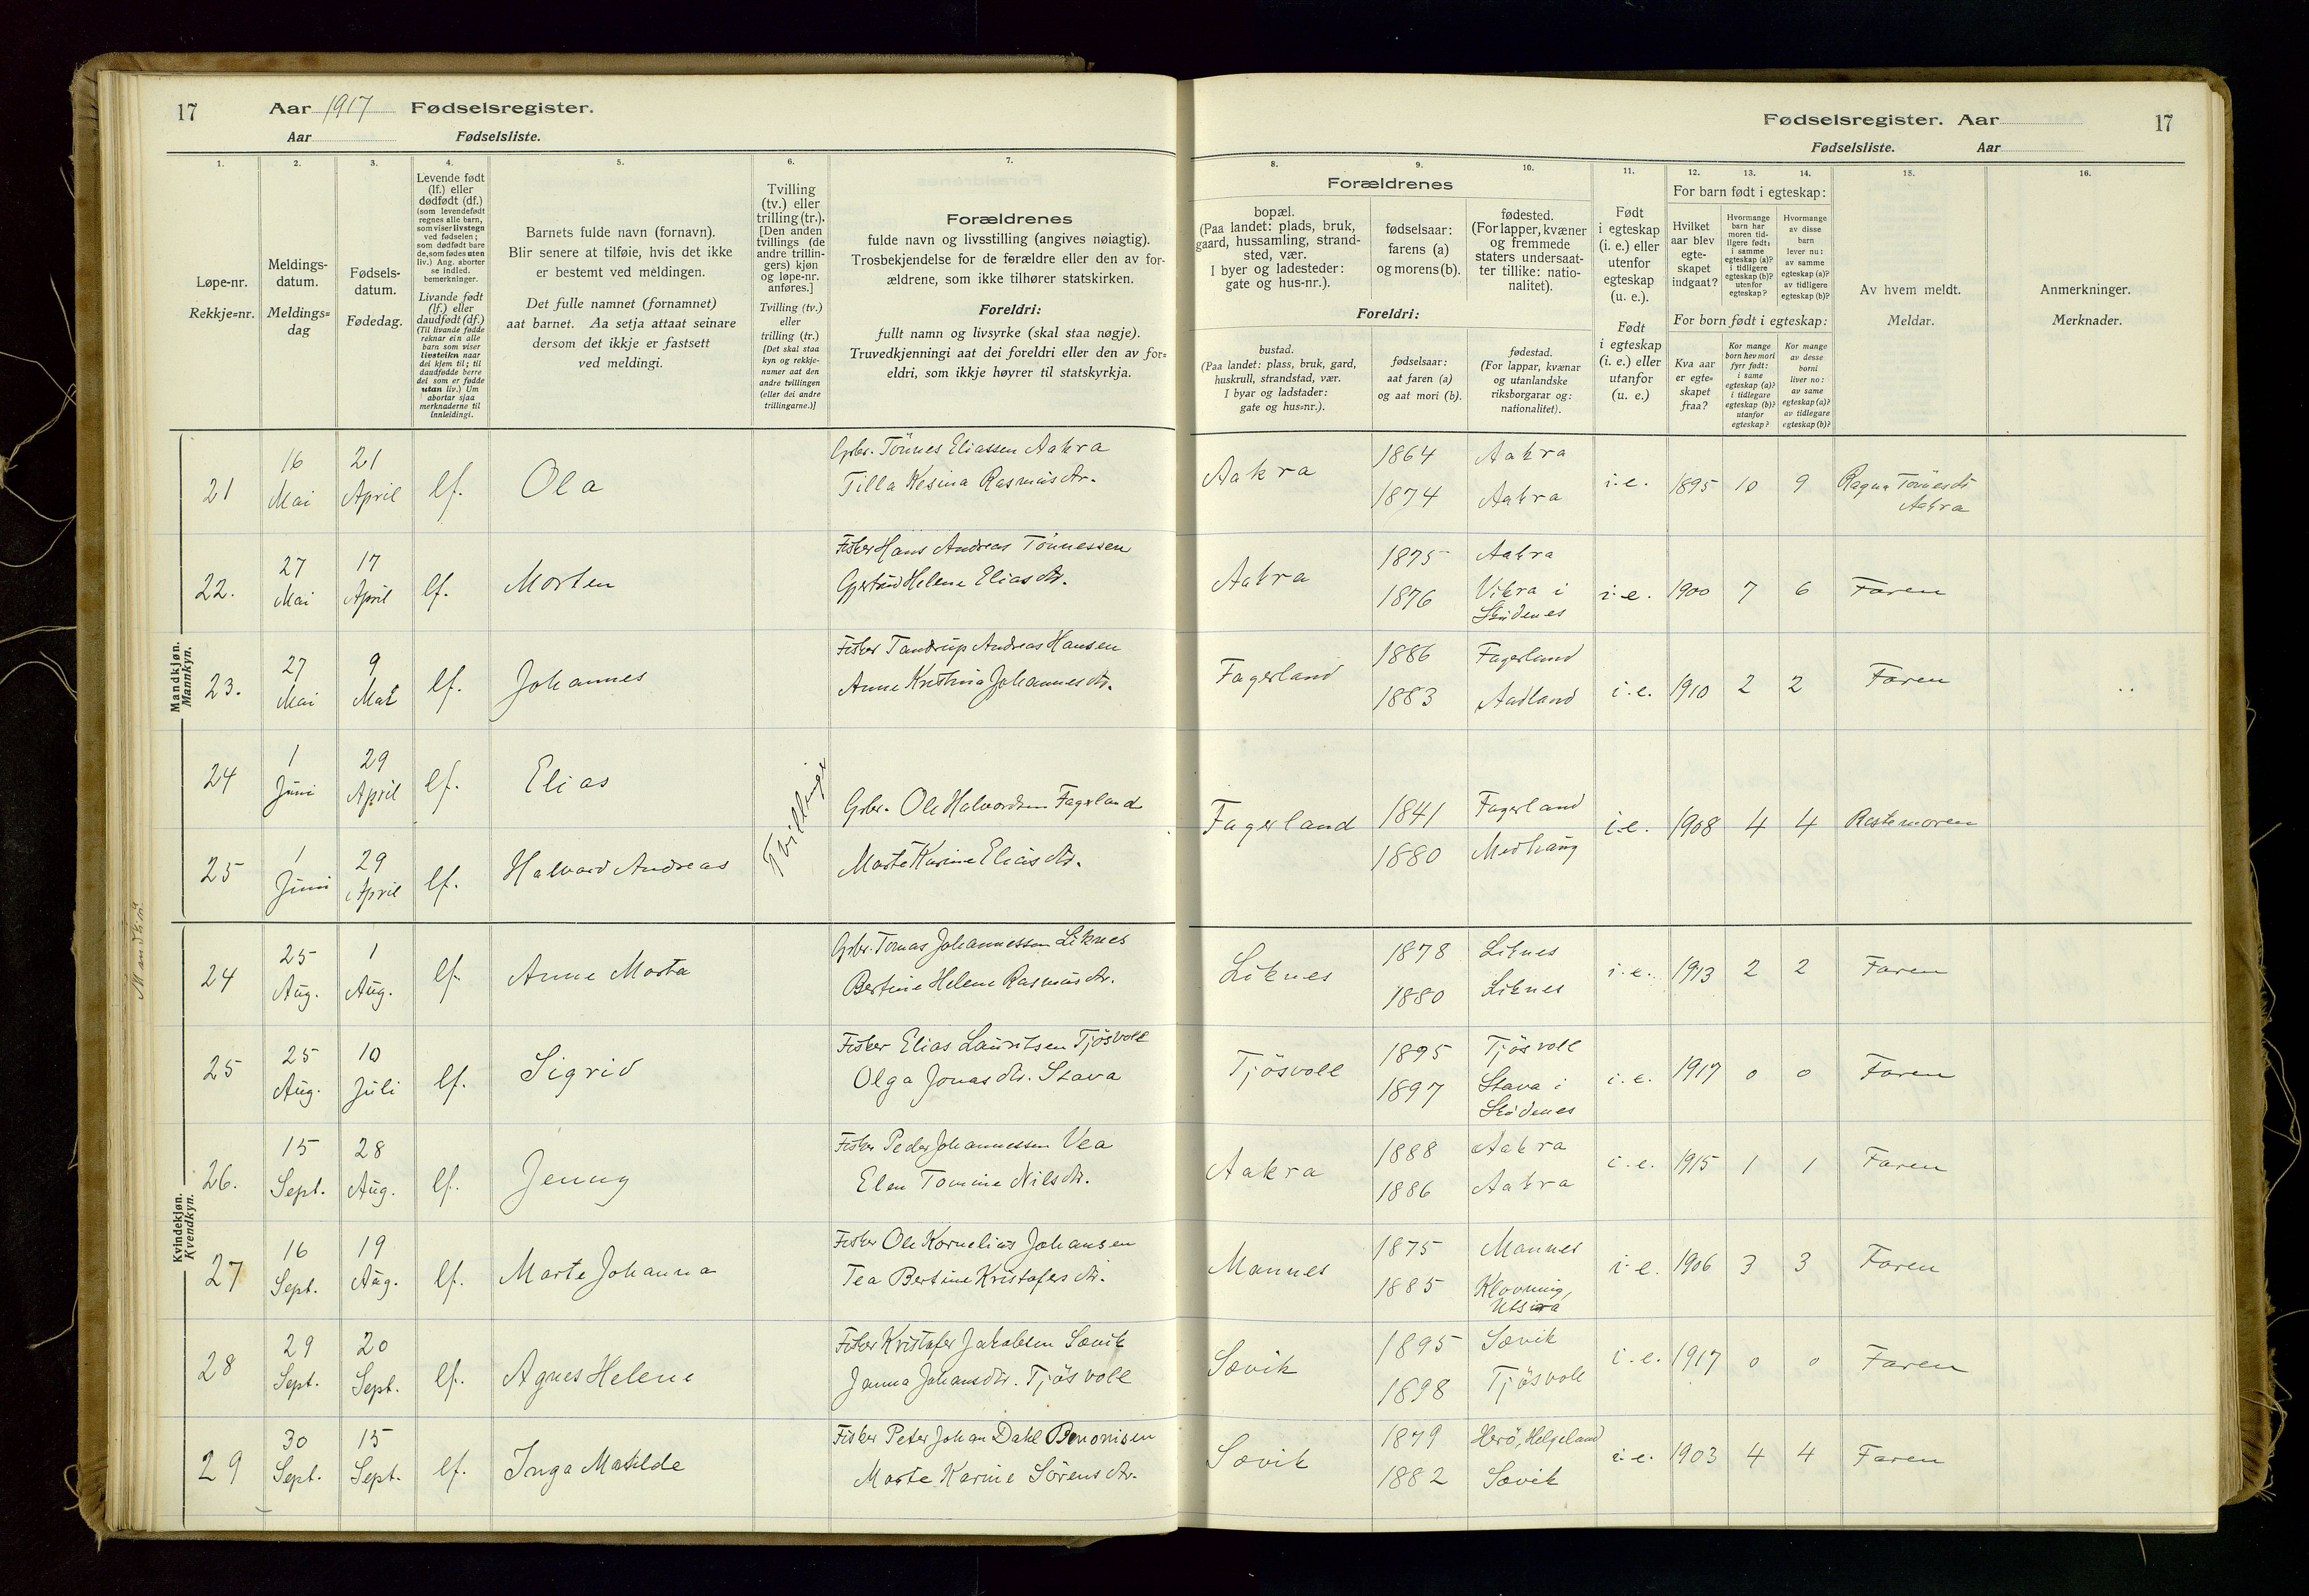 17 Aar 1917 Fødselsregister.
Aar Fødselsliste.
Fødselsregister. Aar 17
Fødselsliste. Aar
1. 2. 3. 4. 5. 6. 7. 8. 9. 10. 11. 12. 13. 14. 15. 16.
Løpe-nr.
Rekkje=nr.
Meldings-
datum.
Meldings=
dag
Fødsels-
datum.
Fødedag.
Levende født
(lf.) eller
dødfødt (df.)
(som levendefødt
regnes alle barn,
som viser livstegn
ved fødselen;
som dødfødt bare
de, som fødes uten
liv.) Ang. aborter
se indled.
bemerkninger.
Livande født
(lf.) eller
daudfødt (df.)
(Til livande fødde
reknar ein alle
barn som viser
livsteikn naar
dei kjem til; til
daudfødde berre
dei som er fødde
utan liv.) Um
abortar sjaa
merknaderne til
innleidingi.
Barnets fulde navn (fornavn).
Blir senere at tilføie, hvis det ikke
er bestemt ved meldingen.
Det fulle namnet (fornamnet)
aat barnet. Aa setja attaat seinare
dersom det ikkje er fastsett
ved meldingi.
Tvilling
(tv.) eller
trilling (tr.).
[Den anden
tvillings (de
andre trillin-
gers) kjøn
og løpe-nr.
anføres.]
Tvilling (tv.)
eller
trilling (tr.)
[Det skal staa
kyn og rekkje-
numer aat den
andre tvillingen
(eller dei andre
trillingarne.)]
Forældrenes
fulde navn og livsstilling (angives nøiagtig).
Trosbekjendelse for de forældre eller den av for-
ældrene, som ikke tilhører statskirken.
Foreldri:
fullt namn og livsyrke (skal staa nøgje).
Truvedkjenningi aat dei foreldri eller den av for=
eldri, som ikkje høyrer til statskyrkja.
Forældrenes
bopæl.
(Paa landet: plads, bruk,
gaard, hussamling, strand-
sted, vær.
I byer og ladesteder:
gate og hus-nr.).
fødselsaar:
farens (a)
og morens (b).
fødested.
(For lapper, kvæner
og fremmede
staters undersaat-
ter tillike: natio-
nalitet).
Foreldri:
bustad.
(Paa landet: plass, bruk, gard,
huskrull, strandstad, vær.
I byar og ladstader:
gate og hus=nr.).
fødselsaar:
aat faren (a)
og aat mori (b).
fødestad.
(For lappar, kvænar
og utanlandske
riksborgarar og:
nationalitet).
Født
i egteskap
(i. e.) eller
utenfor
egteskap
(u. e.).
Født
i egteskap
(i. e.) eller
utanfor
(u. e.)
For barn født i egteskap:
Hvilket
aar blev
egte-
skapet
indgaat?
Hvormange
barn har
moren tid-
ligere født:
i samme
egteskap (a)?
i tidligere
egteskap (b)?
utenfor
egteskap?
Hvormange
av disse
barn
lever nu:
av samme
egteskap (a)?
av tidligere
egteskap (b)?
For born født i egteskap:
Kva aar
er egte=
skapet
fraa?
Kor mange
born hev mori
fyrr født:
i same
egteskap (a)?
i tidlegare
egteskap (b)?
utanfor
egteskap?
Kor mange
av desse
borni
liver no:
av same
egteskap (a)?
av tidlegare
egteskap (b)?
Av hvem meldt.
Meldar.
Anmerkninger.
Merknader.
Mandkjøn.
Mannkyn.
21 16 Mai 21 April lf. Ola Gsbr. Tönnes Eliassen Aakra
Tilla Kesina Rasmusdtr. Aakra 1864 1874 Aakra Aakra i.e. 1895 10 9 Ragna Tönnesdt Aakra
22. 27 Mai 17 April lf. Morten Fisker Hans Andreas Tönnessen
Gjertrud Helene Eliasdtr. Aakra 1875 1876 Aakra Vikra i Skudenes i.e. 1900 7 6 Faren
23. 27 Mai 9 Mai lf. Johannes Fisker Tandrup Andreas Hansen
Anne Kristina Johannesdtr. Fagerland 1886 1883 Fagerland Aadland i.e. 1910 2 2 Faren
24 1 Juni 29 April lf. Elias Tvillinge Gsbr. Ole Halvordsen Fagerland
25 1 Juni 29 April lf. Halvard Andreas Marte Karine Eliasdtr. Fagerland 1841 1880 Fagerland Medhaug i.e. 1908 4 4
Kvindekjøn.
Kvendkyn.
24 25 Aug. 1 Aug. lf. Anne Marta Gsbr. Tomas Johannessen Liknes
Bertine Helene Rasmusdtr. Liknes 1878 1880 Liknes Liknes i.e. 1913 2 2 Faren
25 25 Aug. 10 Juli lf. Sigrid Fisker Elias Lauritsen Tjösvoll
Olga Jonasdtr. Stava Tjösvoll 1895 1897 Tjösvoll Stava i Skudenes i.e. 1917 0 0 Faren
26. 15 Sept. 28 Aug. lf. Jenny Fisker Peder Johannessen Vea
Elen Tomine Nilsdtr. Aakra 1888 1886 Aakra Aakra i.e. 1915 1 1 Faren
27 16 Sept. 19 Aug. lf. Marte Johanna Fisker Ole Kornelius Johansen
Tea Bertine Kristofersdtr. Mannes 1875 1885 Mannes Klovning, Utsira i.e. 1906 3 3 Faren
28 29 Sept. 20 Sept. lf. Agnes Helene Fisker Kristofer Jakobsen Sævik
Janna Johansdtr. Tjösvoll Sævik 1895 1898 Sævik Tjösvoll i.e. 1917 0 0 Faren
29 30 Sept. 15 Sept. lf. Inga Matilde Fisker Peter Johan Dahl Benonisen
Marte Karine Sörensdtr. Sævik 1879 1882 Herö, Helgeland Sævik i.e. 1903 4 4 Faren